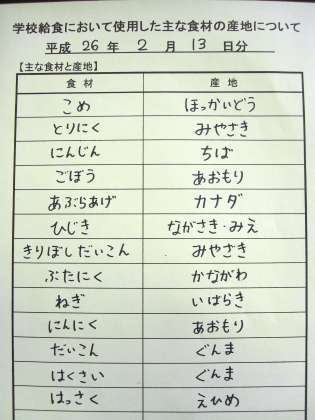 学校給食において使用した主な食材の産地について
平成 26 年 2 月 13 日分
【主な食材と産地】
食材 産地
こめ ほっかいどう
とりにく みやざき
にんじん ちば
ごぼう あおもり
あぶらあげ カナダ
ひじき ながさき・みえ
きりぼしだいこん みやざき
ぶたにく かながわ
ねぎ いばらき
にんにく あおもり
だいこん ぐんま
はくさい ぐんま
はっさく えひめ